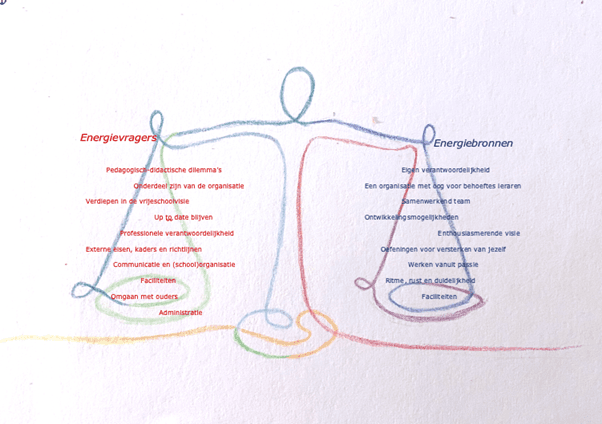 Energievragers
Pedagogisch-didactische dilemma's
Onderdeel zijn van de organisatie
Verdiepen in de vrijeschoolvisie
Up to date blijven
Professionele verantwoordelijkheid
Externe eisen, kaders en richtlijnen
Communicatie en (school)organisatie
Faciliteiten
Omgaan met ouders
Administratie
Energiebronnen
Eigen verantwoordelijkheid
Een organisatie met oog voor behoeftes leraren
Samenwerkend team
Ontwikkelingsmogelijkheden
Enthousiasmerende visie
Oefeningen voor versterken van jezelf
Werken vanuit passie
Ritme, rust en duidelijkheid
Faciliteiten